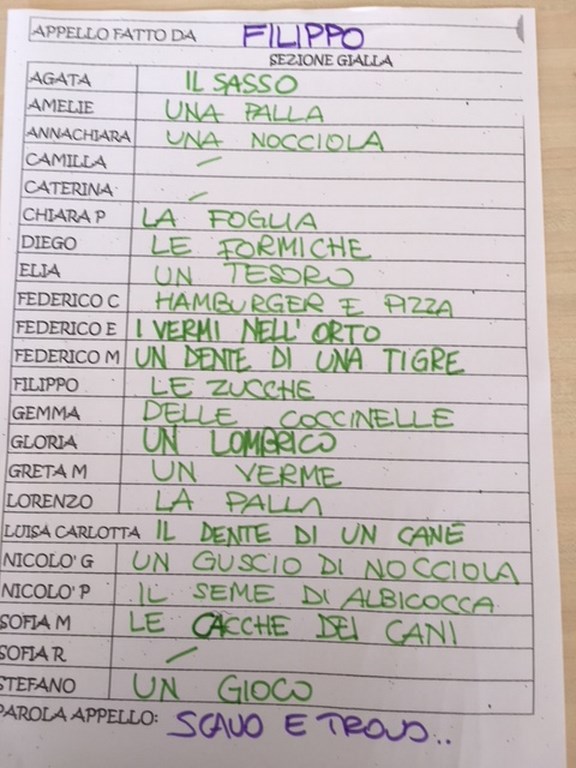 APPELLO FATTO DA FILIPPO
SEZIONE GIALLA
AGATA IL SASSO
AMELIE UNA PALLA
ANNACHIARA UNA NOCCIOLA
CAMILLA –
CATERINA –
CHIARA P LA FOGLIA
DIEGO LE FORMICHE
ELIA UN TESORO
FEDERICO C HAMBURGER E PIZZA
FEDERICO E I VERMI NELL' ORTO
FEDERICO M UN DENTE DI UNA TIGRE
FILIPPO LE ZUCCHE
GEMMA DELLE COCCINELLE
GLORIA UN LOMBRICO
GRETA M UN VERME
LORENZO LA PALLA
LUISA CARLOTTA IL DENTE DI UN CANE
NICOLO' G UN GUSCIO DI NOCCIOLA
NICOLO' P IL SEME DI ALBICOCCA
SOFIA M LE CACCHE DEI CANI
SOFIA R –
STEFANO UN GIOCO
PAROLA APPELLO: SCAVO E TROVO..